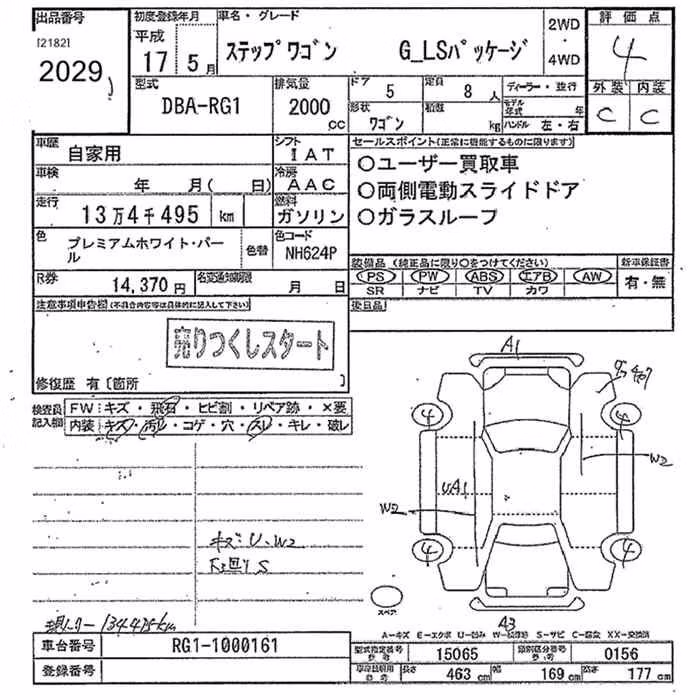 出品番号 初度登録年月 車名・グレード 評価点
[2182] 平成 2WD
2029 17 5月 ステップワゴン G_LSパッケージ ・ 4
4WD
型式 排気量 ドア 5 定員 8人 ディーラー・並行 外装 内装
DBA-RG1 2000cc 形状 ワゴン 積載 kg モデル年式 年 C C
ハンドル 左・右
車歴 自家用 シフト IAT セールスポイント(正常に機能するものに限ります)
車検 年 月( 日) 冷房 AAC ○ユーザー買取車
走行 13万4千495 km 燃料 ガソリン ○両側電動スライドドア
○ガラスルーフ
色 プレミアムホワイト・パール 色替 色コード NH624P
装備品(純正品に限り○をつけてください) 新車保証書
R券 14,370円 名変通知期限 月 日 PS PW ABS エアB AW 有・無
SR ナビ TV カワ
注意事項申告欄(不具合内容等は具体的に記入して下さい) 後日品
売りつくしスタート
修復歴 有〔箇所 〕
検査員記入欄 FW:キズ・飛石・ヒビ割・リペア跡・×要
内装:キズ・汚レ・コゲ・穴・スレ・キレ・破レ
A1
4 4
W2
UA1
W2
キズ・U・W2
下回りS
4 4
スペア
A3
A-キズ E-エクボ U-凹み W-補修跡 S-サビ C-腐食 XX-交換済
車台番号 RG1-1000161 型式指定番号 15065 類別区分番号 0156
登録番号 長さ 463cm 幅 169cm 高さ 177cm